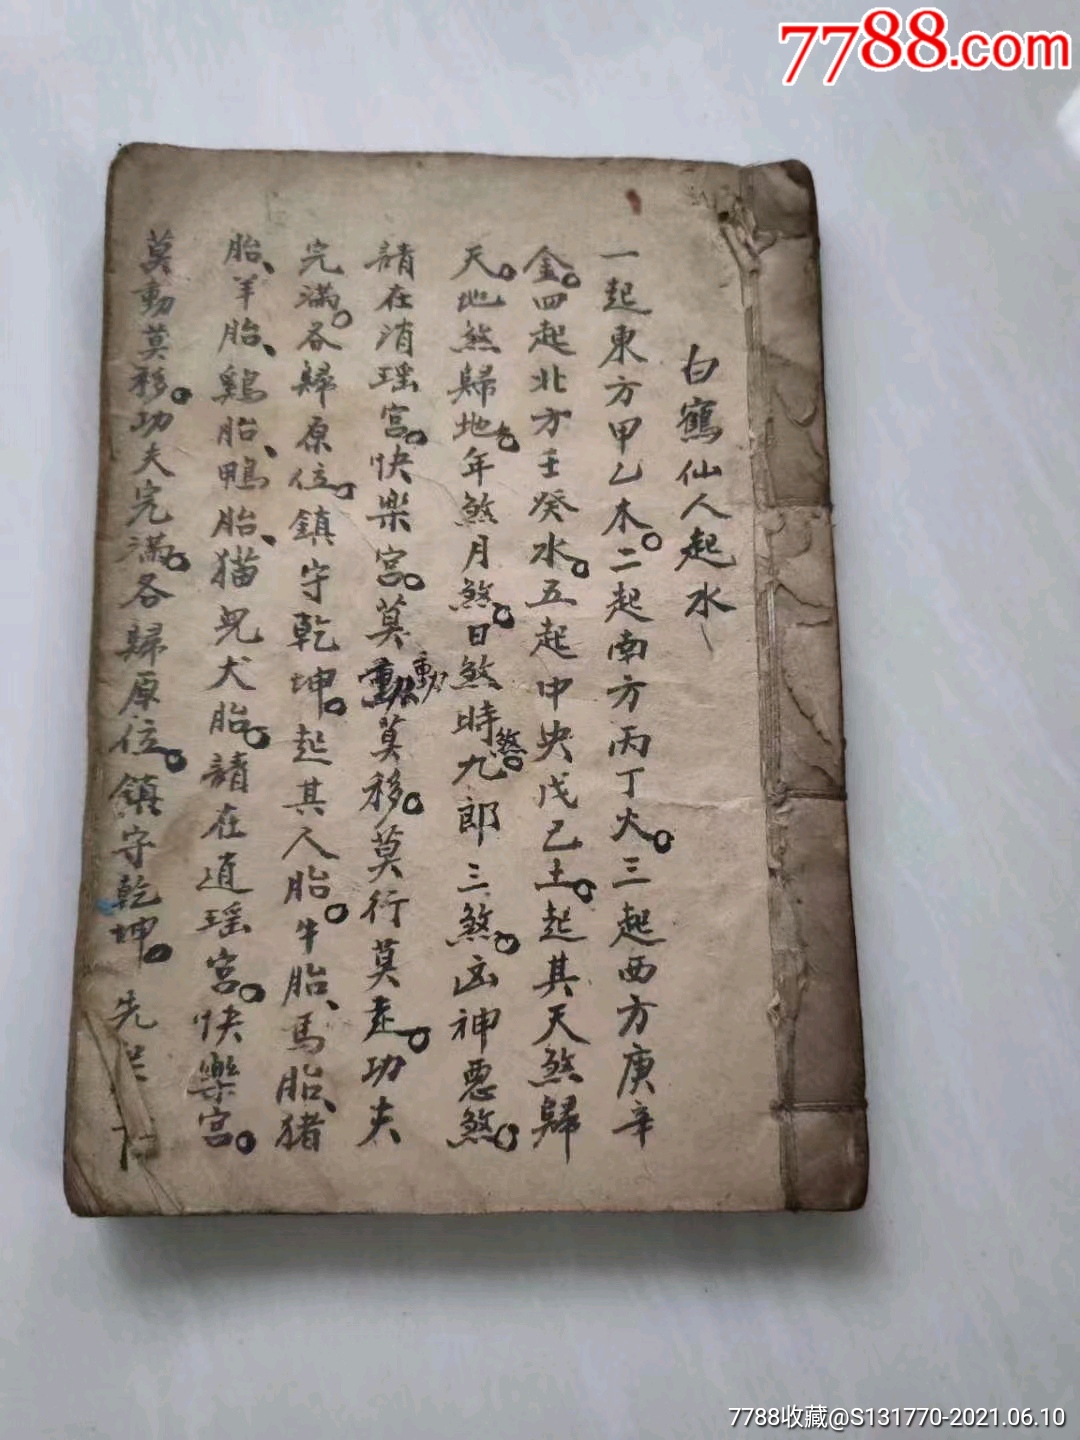 7788.com
白鶴仙人起水
一起東方甲乙木。二起南方丙丁火。三起西方庚辛
金。四起北方壬癸水。五起中央戊己土。起其天煞歸
天。地煞歸地。年煞月煞。日煞時煞。九郎三煞。凶神惡煞。
請在消瑶宮。快樂宮。莫動動莫移。莫行莫走。功夫
完滿。各歸原位。鎮守乾坤。起其人胎。牛胎、馬胎、猪
胎、羊胎、鷄胎、鴨胎、猫兒犬胎。請在逍瑶宮。快樂宮。
莫動莫移。功夫完滿。各歸原位。鎮守乾坤。先
7788收藏@S131770-2021.06.10